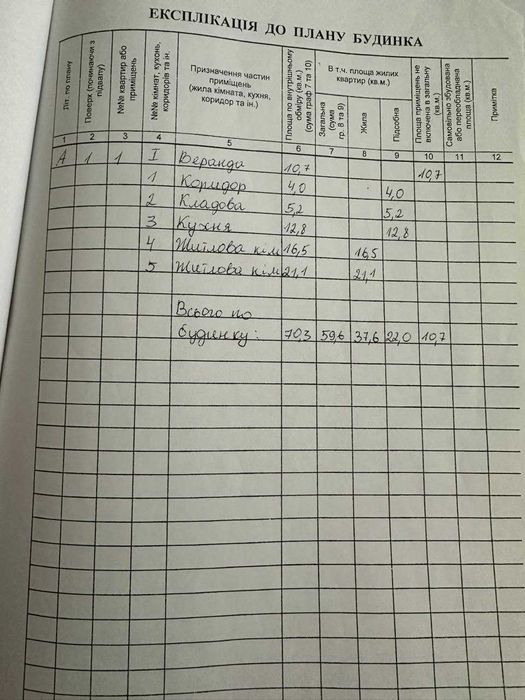 ЕКСПЛІКАЦІЯ ДО ПЛАНУ БУДИНКА
Літ. по плану
Поверх (починаючи з підвалу)
№№ квартир або приміщень
№№ кімнат, кухонь, коридорів та ін.
Призначення частин приміщень (жила кімната, кухня, коридор та ін.)
Площа по внутрішньому обміру (кв.м.) (сума граф 7 та 10)
В т.ч. площа жилих квартир (кв.м.)
Загальна (сума гр. 8 та 9)
Жила
Підсобна
Площа приміщень не включена в загальну (кв.м)
Самовільно збудована або переобладнана площа (кв.м.)
Примітка
1 2 3 4 5 6 7 8 9 10 11 12
А 1 1 I Веранда 10,7 10,7
1 Коридор 4,0 4,0
2 Кладова 5,2 5,2
3 Кухня 12,8 12,8
4 Житлова кім 16,5 16,5
5 Житлова кім 21,1 21,1
Всього по
будинку: 70,3 59,6 37,6 22,0 10,7